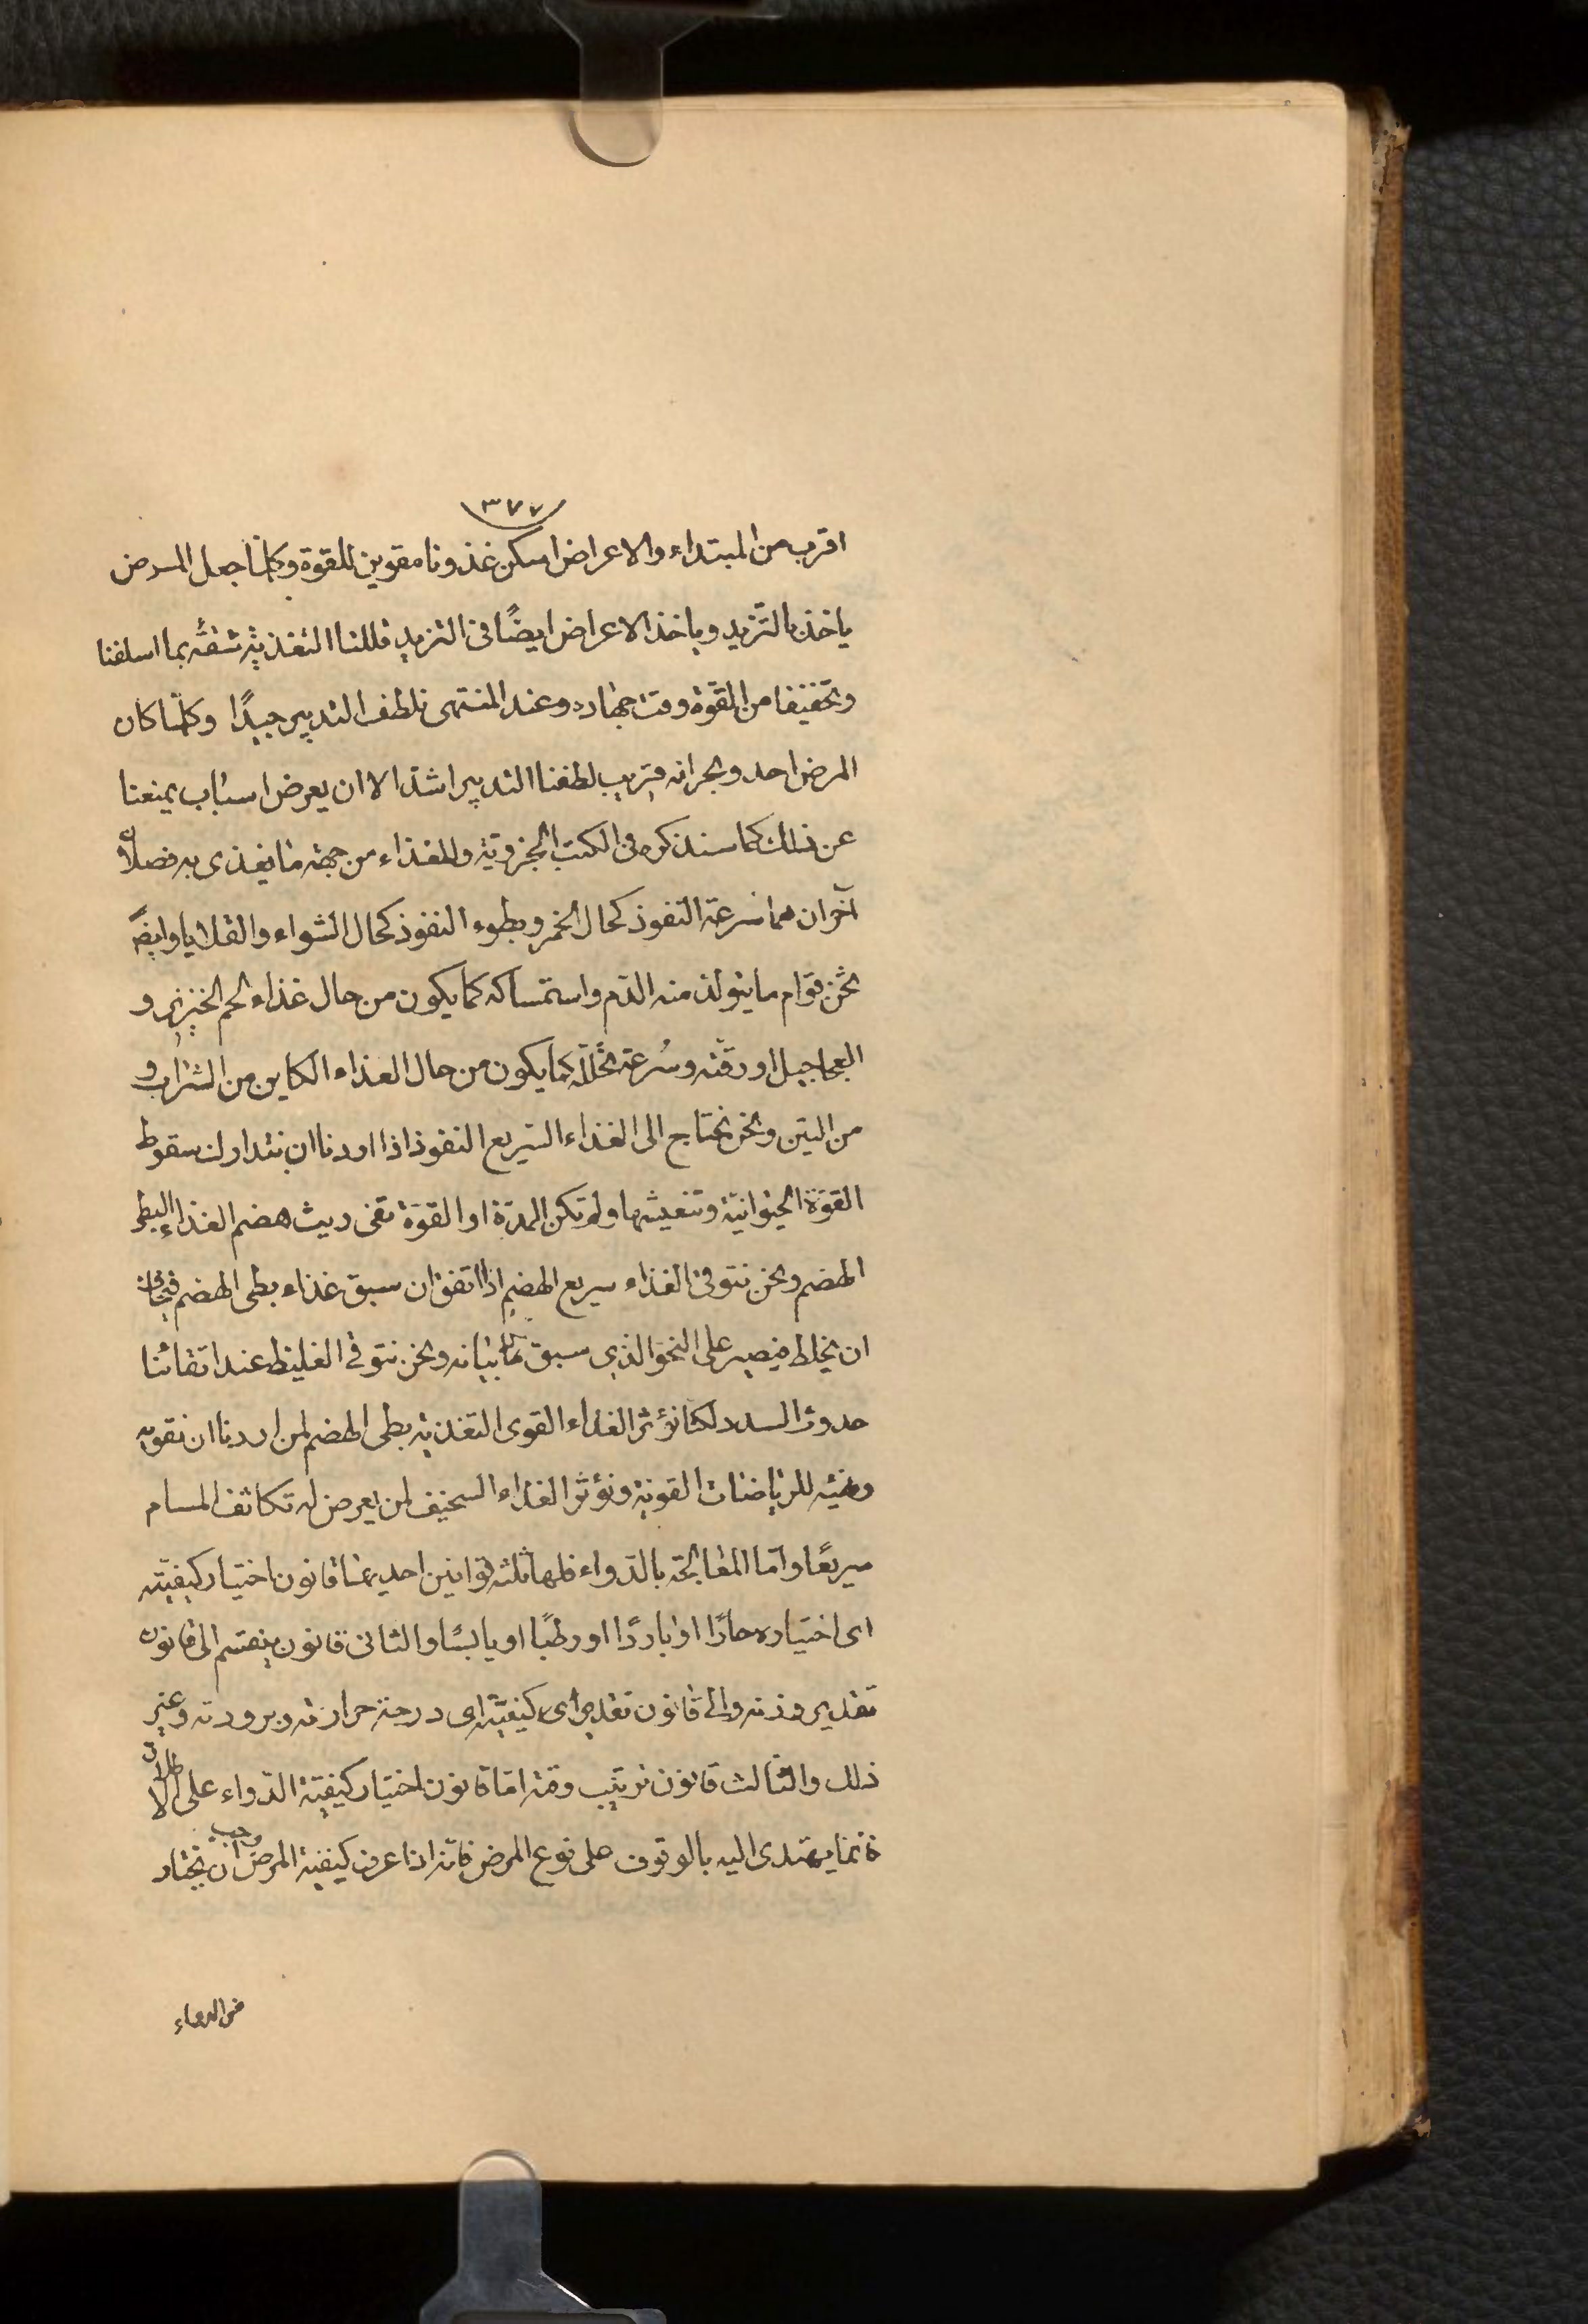 ٣٧٧
اقرب من المبتداء والاعراض اسكن غذونا مقوين للقوة وكلما جعل المرض
ياخذ بالتزيد وياخذ الاعراض ايضًا فى التزيد قللنا التغذية ثقة بما اسلفنا
وتخفيفا من القوة وقت جهاده وعند المنتهى نلطف التدبير جيدًا وكلما كان
المرض احد وبحرانه قريب لطفنا التدبير اشد الا ان يعرض اسباب يمنعنا
عن ذلك كما سنذكره فى الكتب الجزوية وللغذاء من جهة ما يغذى به فصلان
آخران هما سرعة النفوذ كحال الخمر وبطوء النفوذ كحال الشواء والقلايا وايضًا
ثخن قوام ما يتولد منه الدم واستمساكه كما يكون من حال غذاء لحم الخنزير و
العجاجيل او رقته وسُرعة تحلله كما يكون من حال الغذاء الكاين من الشراب و
من التين ونحن نحتاج الى الغذاء السريع النفوذ اذا اردنا ان نتدارك سقوط
القوة الحيوانية وتنعيشها ولم تكن المدة او القوة تفى ريث هضم الغذاء البطى
الهضم ونحن نتوقى الغذاء سريع الهضم اذا اتفق ان سبق غذاء بطى الهضم فنخاف
ان يختلط فيصير على النحو الذى سبق منا بيانه ونحن نتوقى الغليظ عند اتقائنا
حدوث السدد لكنا نؤثر الغذاء القوى التغذية بطى الهضم لمن اردنا ان نقويه
ونهيئه للرياضات القوية ونؤثر الغذاء السخيف لمن يعرض له تكاثف المسام
سريعًا واما المعالجة بالدواء فلها ثلثة قوانين احديهما قانون اختيار كيفيته
اى اختياره حارًا او باردًا او رطبًا او يابسًا والثانى قانون ينقسم الى قانون
تقدير وزنه والى قانون تقدير اى كيفيته اى درجة حرارته وبرودته وغير
ذلك والثالث قانون ترتيب وقته اما قانون اختيار كيفية الدواء على الاطلاق
فانما يهتدى اليه بالوقوف على نوع المرض فانه اذا عرف كيفية المرض وجب ان يختار
من الدواء